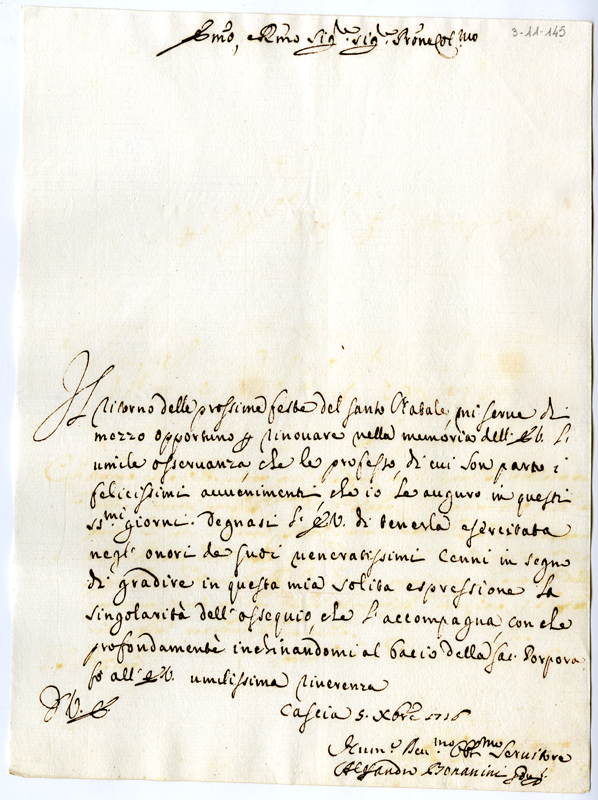 Emo, e Rmo Sig.re Sig.re Prone Col.mo
3-11-145
Il ritorno delle prossime feste del santo Natale, mi serve di
mezzo opportuno p rinouare nella memoria dell' E.V. l'
umile osseruanza, che le professo, di cui son parto i
felicissimi auuenimenti, che io le auguro in questi
ss.mi giorni. Degnasi l' E.V. di tenerla esercitata
negl' onori de suoi veneratissimi Cenni in segno
di gradire in questa mia solita espressione la
singolarità dell' ossequio, che l' accompagna, con che
profondamente inchinandomi al bacio della Sac. Porpora
fò all' E.V. umilissima riuerenza
D. V. E.
Cascia 5. Xbre 1716
Deu.mo Obl.mo Seruitore
Alessandro Bonanini